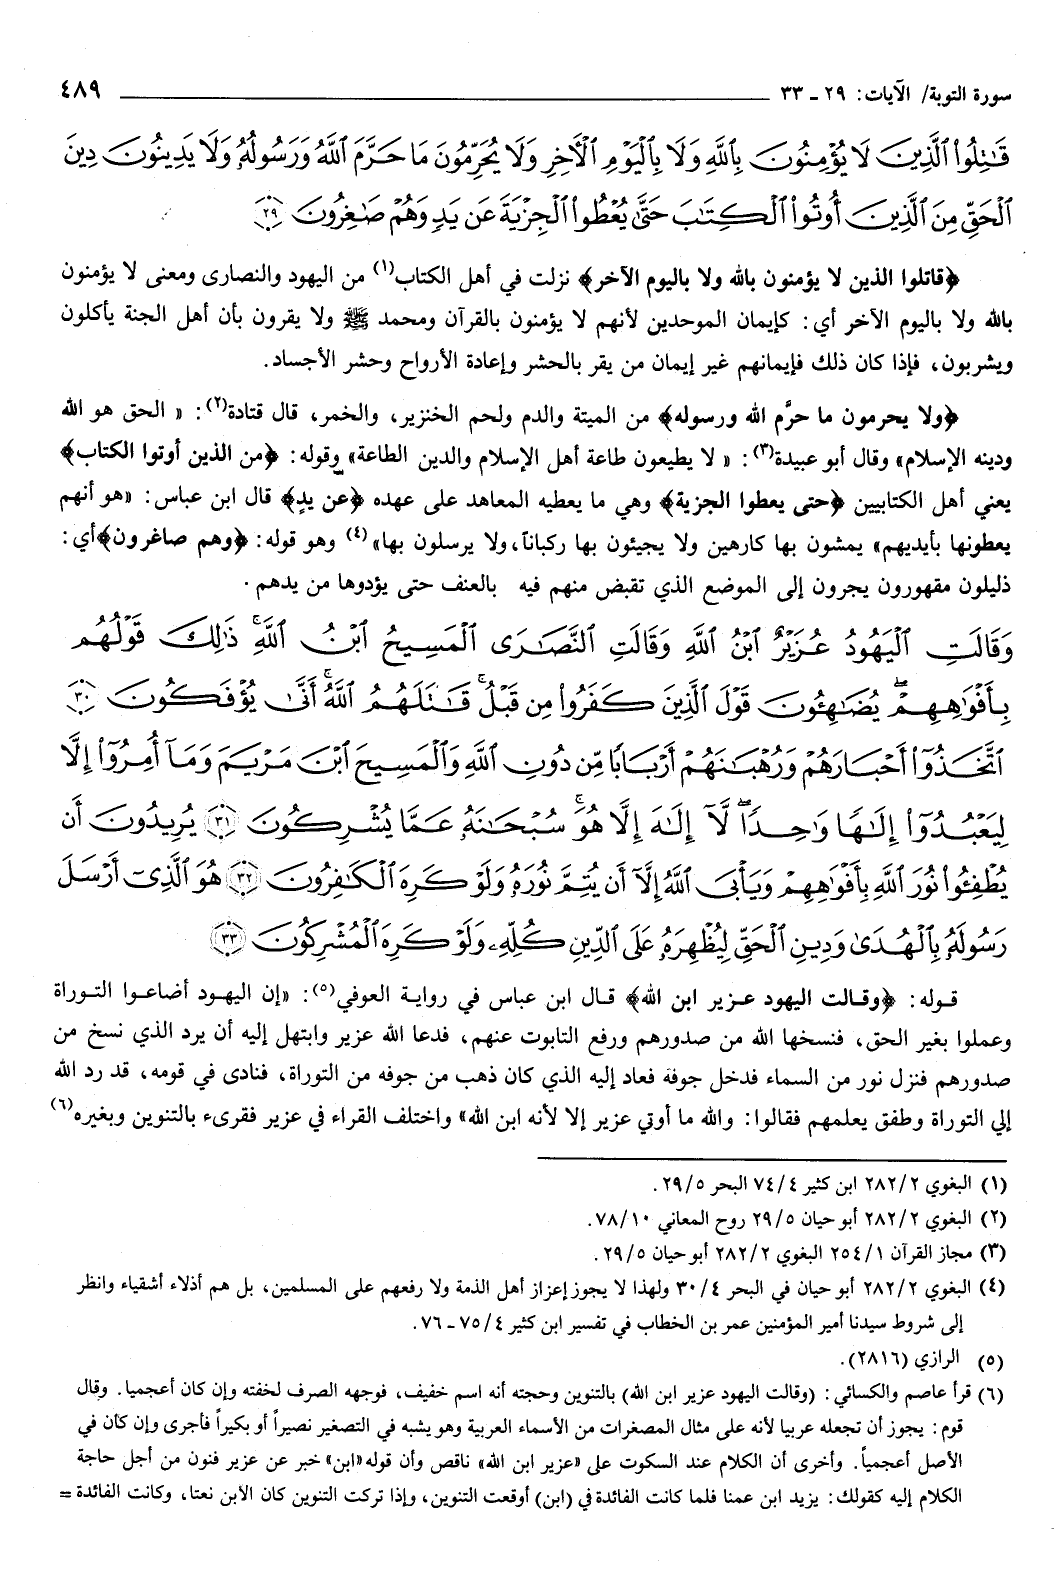 سورة التوبة/ الآيات: ٢٩ ـ ٣٣ ٤٨٩
قَٰتِلُوا۟ ٱلَّذِينَ لَا يُؤْمِنُونَ بِٱللَّهِ وَلَا بِٱلْيَوْمِ ٱلْأَخِرِ وَلَا يُحَرِّمُونَ مَا حَرَّمَ ٱللَّهُ وَرَسُولُهُۥ وَلَا يَدِينُونَ دِينَ
ٱلْحَقِّ مِنَ ٱلَّذِينَ أُوتُوا۟ ٱلْكِتَٰبَ حَتَّىٰ يُعْطُوا۟ ٱلْجِزْيَةَ عَن يَدٍ وَهُمْ صَٰغِرُونَ ٢٩
﴿قاتلوا الذين لا يؤمنون بالله ولا باليوم الآخر﴾ نزلت في أهل الكتاب(١) من اليهود والنصارى ومعنى لا يؤمنون
بالله ولا باليوم الآخر أي: كإيمان الموحدين لأنهم لا يؤمنون بالقرآن ومحمد ﷺ ولا يقرون بأن أهل الجنة يأكلون
ويشربون، فإذا كان ذلك فإيمانهم غير إيمان من يقر بالحشر وإعادة الأرواح وحشر الأجساد.
﴿ولا يحرمون ما حرَّم الله ورسوله﴾ من الميتة والدم ولحم الخنزير، والخمر، قال قتادة(٢): « الحق هو الله
ودينه الإسلام» وقال أبو عبيدة(٣): « لا يطيعون طاعة أهل الإسلام والدين الطاعة» وقوله: ﴿من الذين أوتوا الكتاب﴾
يعني أهل الكتابيين ﴿حتى يعطوا الجزية﴾ وهي ما يعطيه المعاهد على عهده ﴿عن يدٍ﴾ قال ابن عباس: «هو أنهم
يعطونها بأيديهم» يمشون بها كارهين ولا يجيئون بها ركباناً، ولا يرسلون بها»(٤) وهو قوله: ﴿وهم صاغرون﴾أي:
ذليلون مقهورون يجرون إلى الموضع الذي تقبض منهم فيه بالعنف حتى يؤدوها من يدهم.
وَقَالَتِ ٱلْيَهُودُ عُزَيْرٌ ٱبْنُ ٱللَّهِ وَقَالَتِ ٱلنَّصَٰرَى ٱلْمَسِيحُ ٱبْنُ ٱللَّهِ ذَٰلِكَ قَوْلُهُم
بِأَفْوَٰهِهِمْ يُضَٰهِـُٔونَ قَوْلَ ٱلَّذِينَ كَفَرُوا۟ مِن قَبْلُ قَٰتَلَهُمُ ٱللَّهُ أَنَّىٰ يُؤْفَكُونَ ٣٠
ٱتَّخَذُوٓا۟ أَحْبَارَهُمْ وَرُهْبَٰنَهُمْ أَرْبَابًا مِّن دُونِ ٱللَّهِ وَٱلْمَسِيحَ ٱبْنَ مَرْيَمَ وَمَآ أُمِرُوٓا۟ إِلَّا
لِيَعْبُدُوٓا۟ إِلَٰهًا وَٰحِدًا لَّآ إِلَٰهَ إِلَّا هُوَ سُبْحَٰنَهُۥ عَمَّا يُشْرِكُونَ ٣١ يُرِيدُونَ أَن
يُطْفِـُٔوا۟ نُورَ ٱللَّهِ بِأَفْوَٰهِهِمْ وَيَأْبَى ٱللَّهُ إِلَّآ أَن يُتِمَّ نُورَهُۥ وَلَوْ كَرِهَ ٱلْكَٰفِرُونَ ٣٢ هُوَ ٱلَّذِىٓ أَرْسَلَ
رَسُولَهُۥ بِٱلْهُدَىٰ وَدِينِ ٱلْحَقِّ لِيُظْهِرَهُۥ عَلَى ٱلدِّينِ كُلِّهِۦ وَلَوْ كَرِهَ ٱلْمُشْرِكُونَ ٣٣
قوله: ﴿وقالت اليهود عزير ابن الله﴾ قال ابن عباس في رواية العوفي(٥): «إن اليهود أضاعوا التوراة
وعملوا بغير الحق، فنسخها الله من صدورهم ورفع التابوت عنهم، فدعا الله عزير وابتهل إليه أن يرد الذي نسخ من
صدورهم فنزل نور من السماء فدخل جوفه فعاد إليه الذي كان ذهب من جوفه من التوراة، فنادى في قومه، قد رد الله
إلي التوراة وطفق يعلمهم فقالوا: والله ما أوتي عزير إلا لأنه ابن الله» واختلف القراء في عزير فقرىء بالتنوين وبغيره(٦)
(١) البغوي ٢/ ٢٨٢ ابن كثير ٤/ ٧٤ البحر ٥/ ٢٩.
(٢) البغوي ٢/ ٢٨٢ أبو حيان ٥/ ٢٩ روح المعاني ١٠/ ٧٨.
(٣) مجاز القرآن ١/ ٢٥٤ البغوي ٢/ ٢٨٢ أبو حيان ٥/ ٢٩.
(٤) البغوي ٢/ ٢٨٢ أبو حيان في البحر ٤/ ٣٠ ولهذا لا يجوز إعزاز أهل الذمة ولا رفعهم على المسلمين، بل هم أذلاء أشقياء وانظر
إلى شروط سيدنا أمير المؤمنين عمر بن الخطاب في تفسير ابن كثير ٤/ ٧٥ ـ ٧٦.
(٥) الرازي (٢٨١٦).
(٦) قرأ عاصم والكسائي: (وقالت اليهود عزير ابن الله) بالتنوين وحجته أنه اسم خفيف، فوجهه الصرف لخفته وإن كان أعجميا. وقال
قوم: يجوز أن تجعله عربيا لأنه على مثال المصغرات من الأسماء العربية وهو يشبه في التصغير نصيراً أو بكيراً فأجرى وإن كان في
الأصل أعجمياً. وأخرى أن الكلام عند السكوت على «عزير ابن الله» ناقص وأن قوله«ابن» خبر عن عزير فنون من أجل حاجة
الكلام إليه كقولك: يزيد ابن عمنا فلما كانت الفائدة في (ابن) أوقعت التنوين، وإذا تركت التنوين كان الأبن نعتا، وكانت الفائدة =